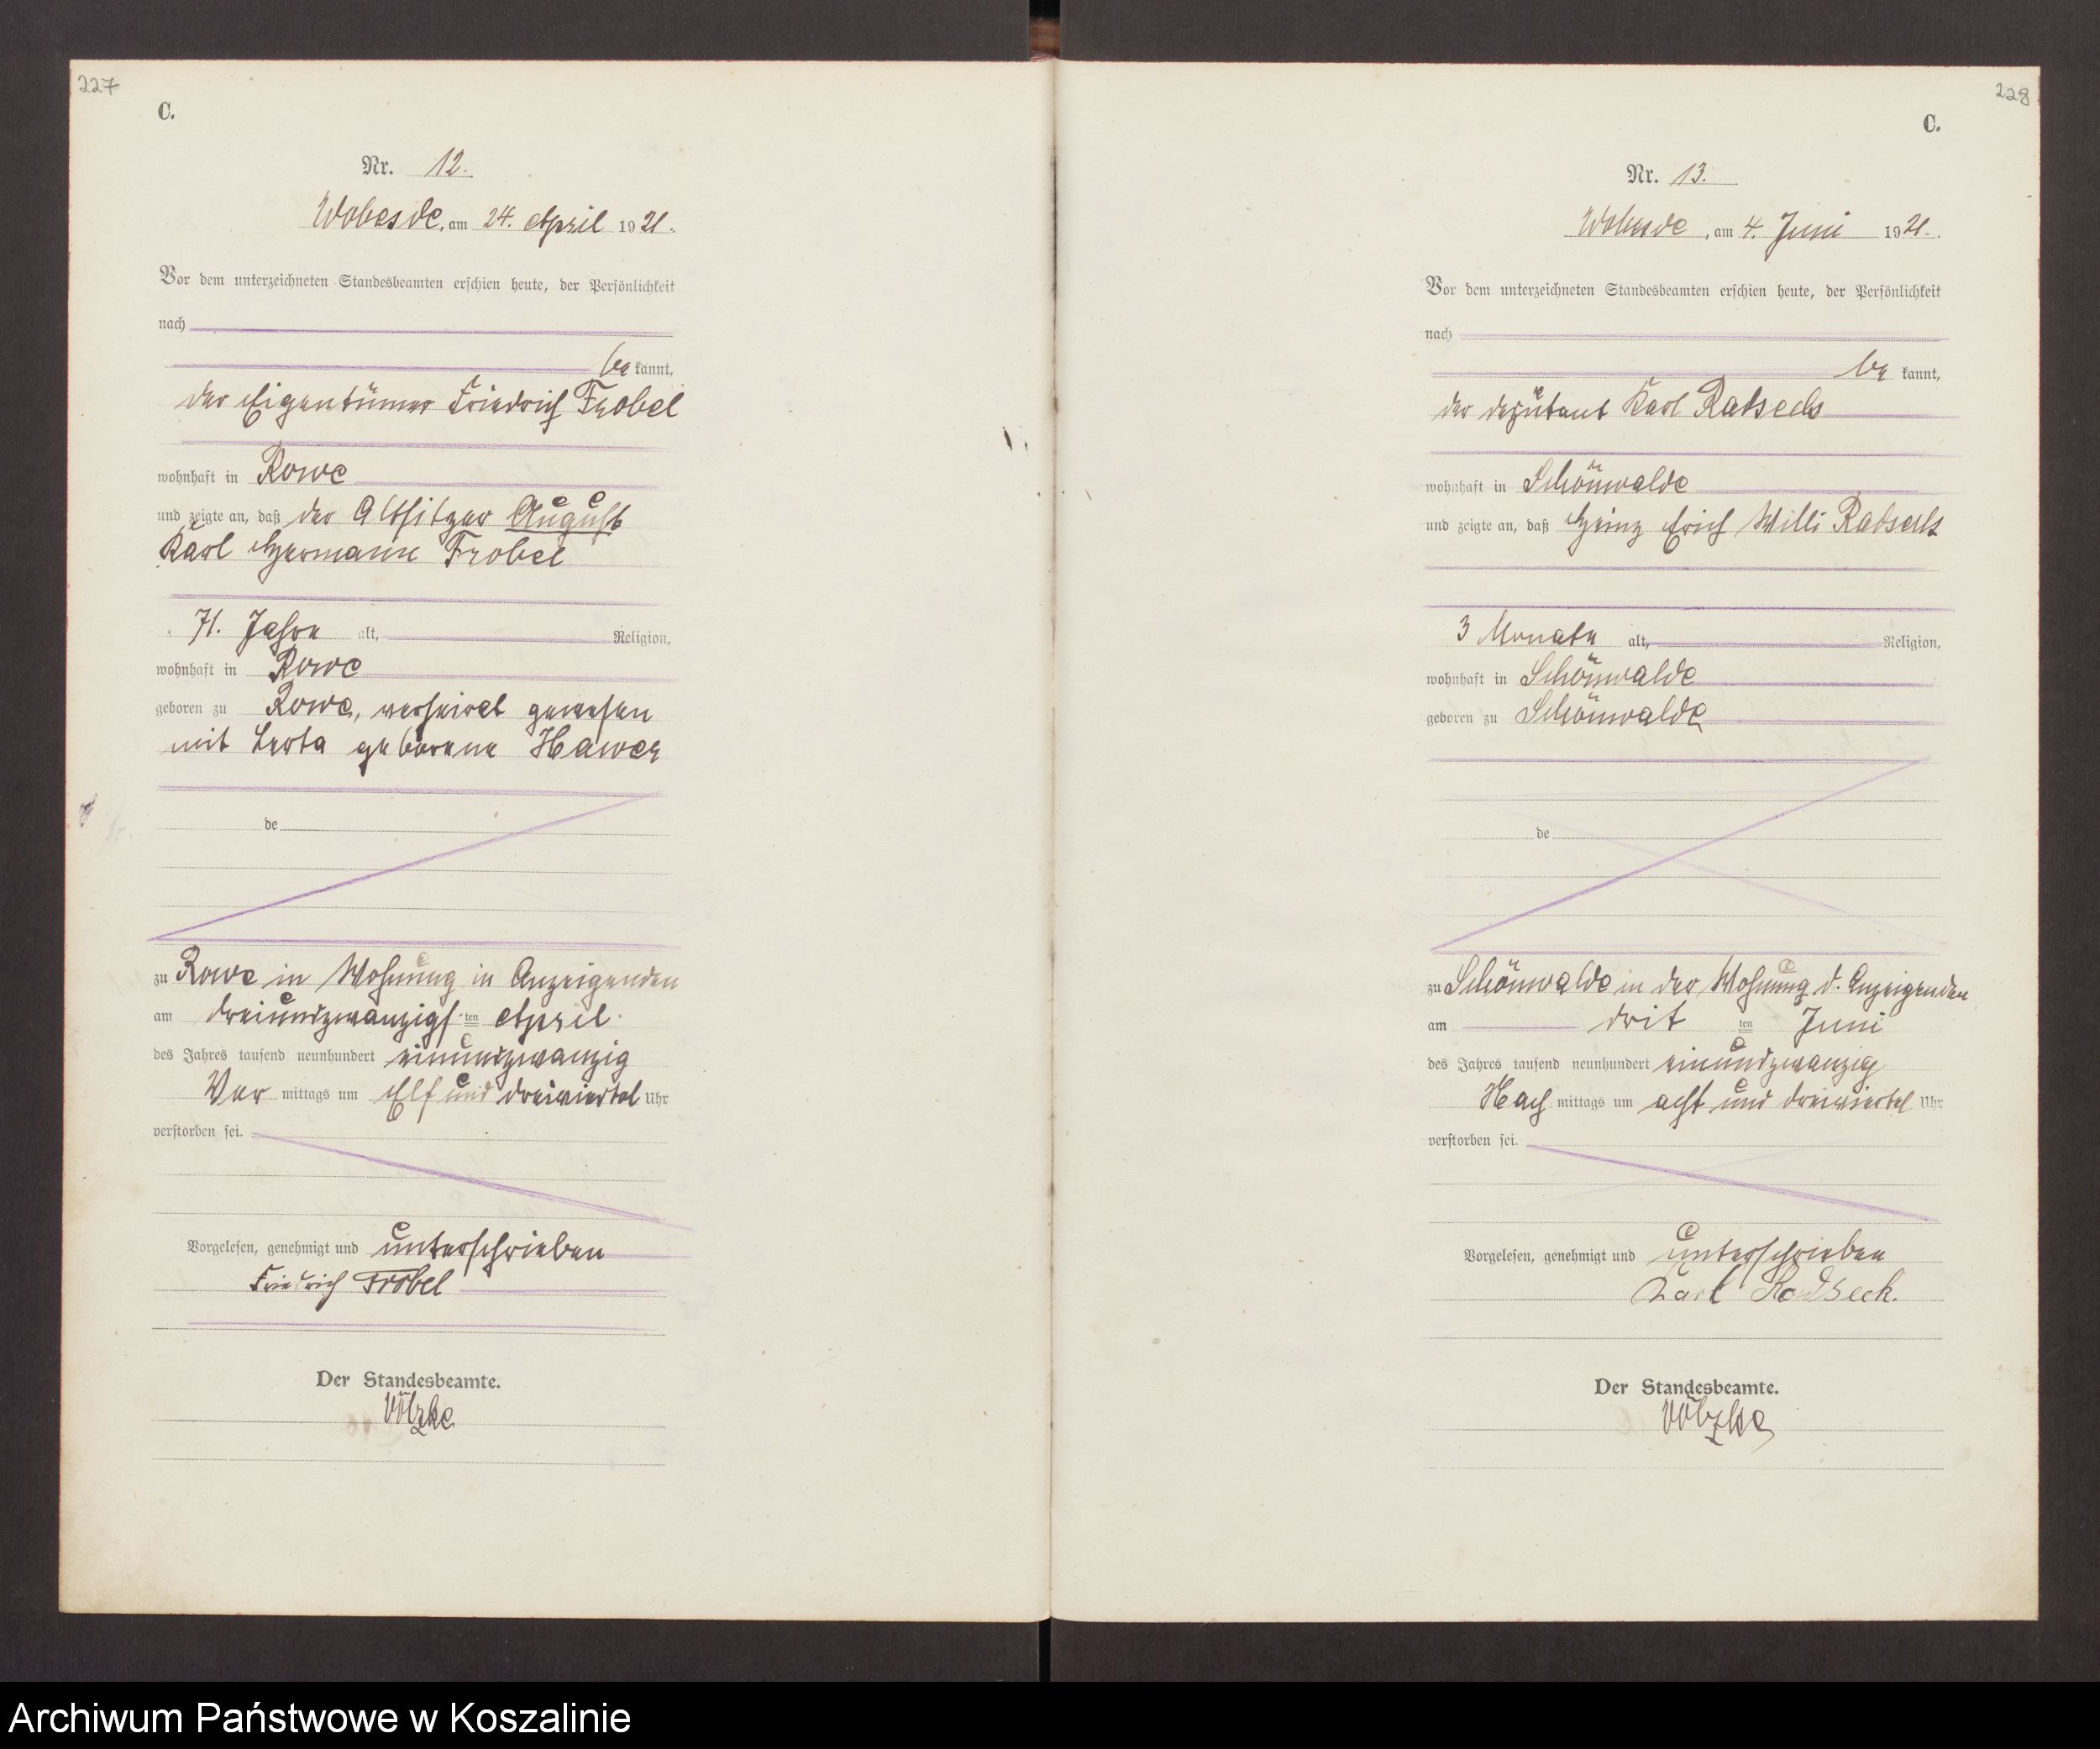 227
C.
Nr. 12.
Wobesde, am 24. April 1921.
Vor dem unterzeichneten Standesbeamten erschien heute, der Persönlichkeit
nach
be kannt,
der Eigentümer Friedrich Frobel
wohnhaft in Rowe
und zeigte an, daß der Altsitzer August
Karl Hermann Frobel
71. Jahre alt, Religion,
wohnhaft in Rowe
geboren zu Rowe, verheirat gewesen
mit Berta geborene Hawer
de
zu Rowe in Wohnung in Anzeigenden
am dreiundzwanzigs ten April
des Jahres tausend neunhundert einundzwanzig
Vor mittags um Elf und dreiviertel Uhr
verstorben sei.
Vorgelesen, genehmigt und unterschrieben
Friedrich Frobel
Der Standesbeamte.
Völzke
228
C.
Nr. 13.
Wobesde, am 4. Juni 1921.
Vor dem unterzeichneten Standesbeamten erschien heute, der Persönlichkeit
nach
be kannt,
der deputant Karl Radseck
wohnhaft in Schönwalde
und zeigte an, daß Heinz Erich Willi Radseck
3 Monate alt, Religion,
wohnhaft in Schönwalde
geboren zu Schönwalde
de
zu Schönwalde in der Wohnung d. Anzeigenden
am drit ten Juni
des Jahres tausend neunhundert einundzwanzig
Nach mittags um acht und dreiviertel Uhr
verstorben sei.
Vorgelesen, genehmigt und unterschrieben
Karl Radseck.
Der Standesbeamte.
Völzke
Archiwum Państwowe w Koszalinie